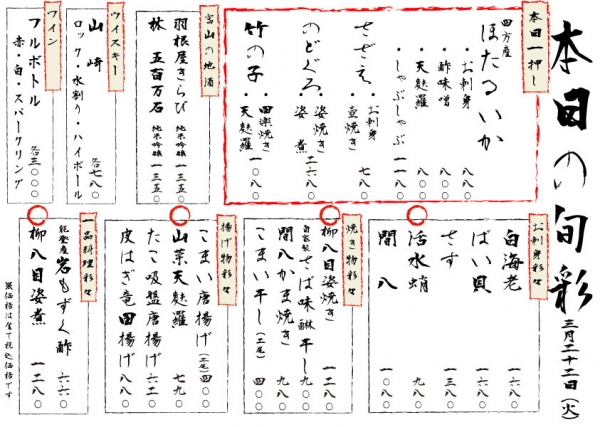 本日の旬彩
三月二十二日(火)
本日一押し
四方産
ほたるいか
・お刺身 八八〇
・酢味噌 八八〇
・天麩羅 八八〇
・しゃぶしゃぶ 一一八〇
さざえ
・お刺身
・壺焼き 七八〇
のどぐろ
・姿焼き
・姿煮 二六八〇
竹の子
・田楽焼き
・天麩羅 一〇八〇
富山の地酒
羽根屋きらび 純米吟醸 一三五〇
林 五百万石 純米吟醸 一三五〇
ウイスキー
山崎 各七八〇
ロック・水割り・ハイボール
ワイン
フルボトル 各三〇〇〇
赤・白・スパークリング
お刺身彩々
白海老 一六八〇
ばい貝 一六八〇
さす 一三八〇
活水蛸 九八〇
間八 一〇八〇
焼き物彩々
柳八目姿焼き 一二八〇
自家製 さば味醂干し 九八〇
間八かま焼き 九八〇
こまい干し(二尾) 四〇〇
揚げ物彩々
こまい唐揚げ(二尾) 四〇〇
山菜天麩羅 七九〇
たこ吸盤唐揚げ 六二〇
皮はぎ竜田揚げ 八八〇
一品料理彩々
能登産 岩もずく酢 六六〇
柳八目姿煮 一二八〇
※価格は全て税込価格です